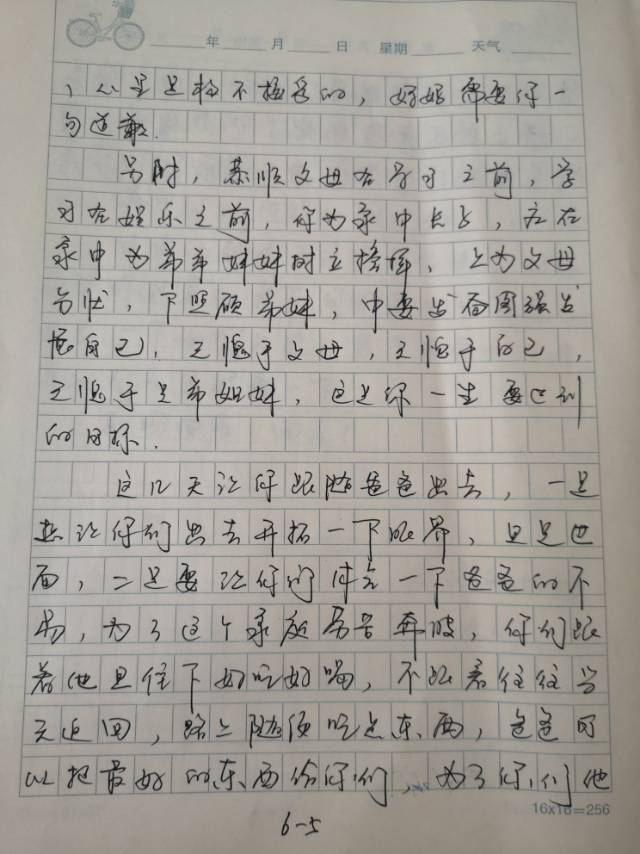 年 月 日 星期 天气
,从里是我不接受的,好好需要你一
句道歉.
另时,恭顺父母在学习之前,学
习在娱乐之前,你为家中长子,应在
家中为弟弟妹妹树立榜样,上为父母
分忧,下照顾弟妹,中要发奋图强发
展自己,无愧于父母,无愧于自己,
无愧于兄弟姐妹,这是你一生要达到
的目标.
这几天让你跟随爸爸出去,一是
想让你们出去开拓一下眼界,见见世
面,二是要让你们体会一下爸爸的不
易,为了这个家庭劳苦奔波,你们跟
着他且住下好吃好喝,不跟着往往当
天返回,路上随便吃点东西,爸爸可
以把最好的东西给你们,为了你们他
16x16=256
6-5